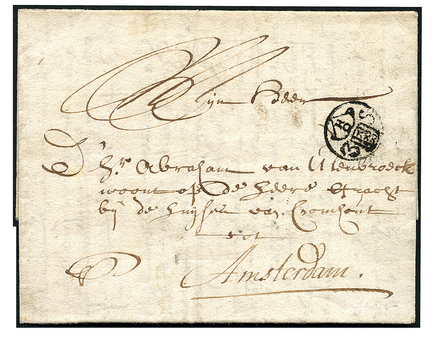 Mijn Heer
D'
hr Abraham van Utenbroeck
woont op de heere gracht
bij de huijse van Cromhout
tot
Amsterdam.